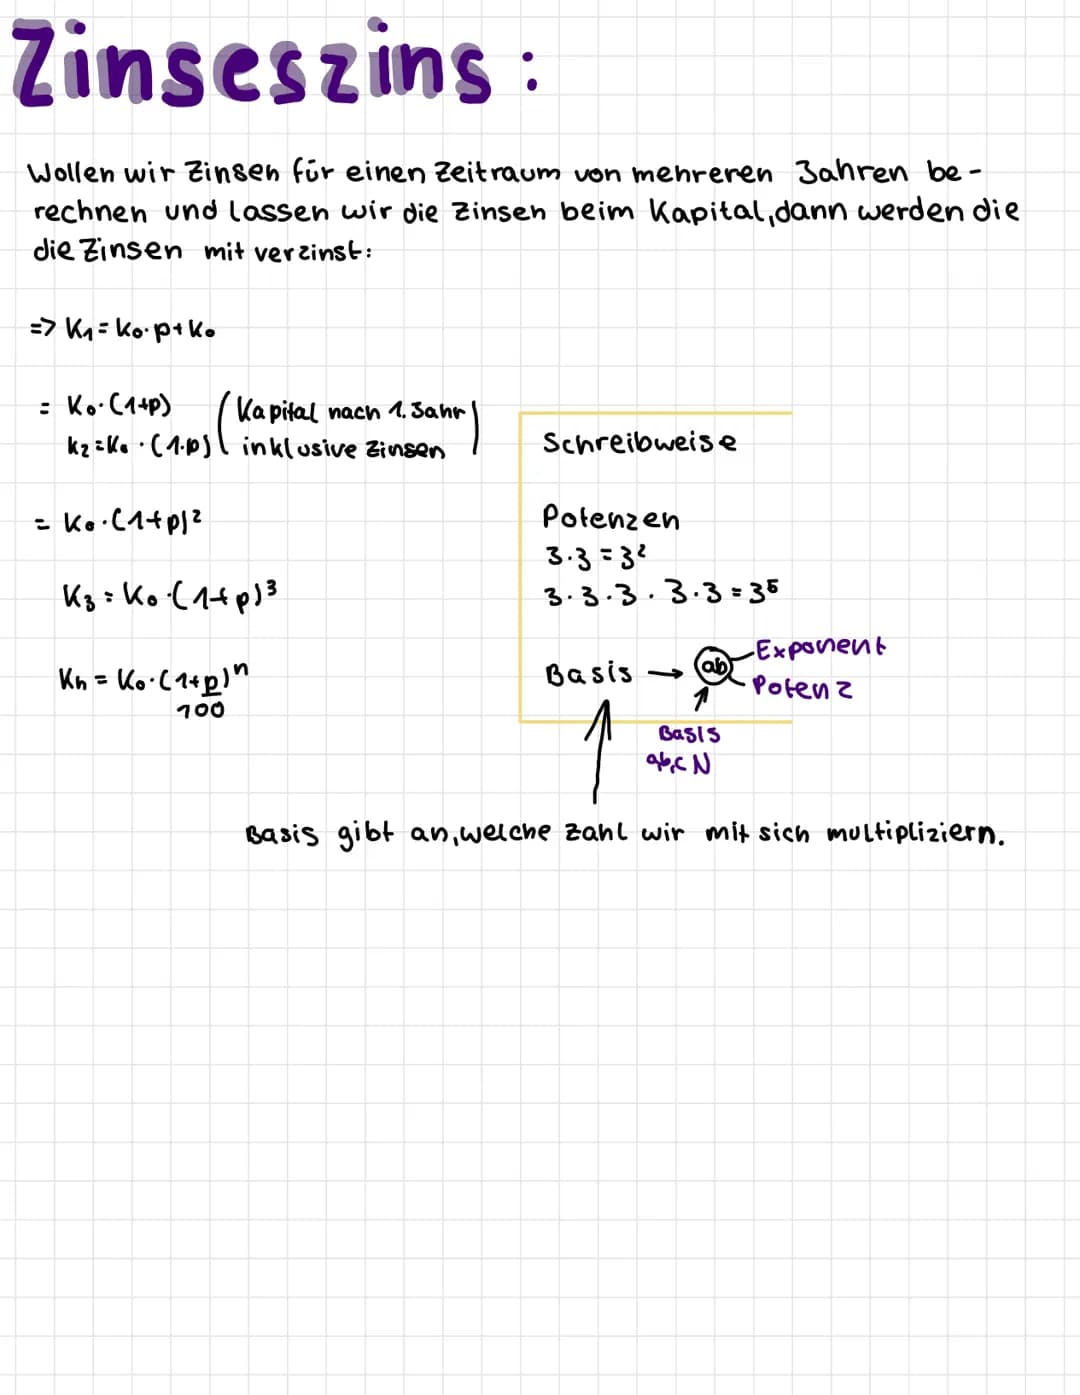 Zinseszins :
Wollen wir Zinsen für einen Zeitraum von mehreren Jahren be-
rechnen und lassen wir die Zinsen beim Kapital, dann werden die
die Zinsen mit verzinst:
=> K₁ = K₀·p+K₀
= K₀·(1+p) (Kapital nach 1. Jahr
K₂ = K₀ · (1·p) inklusive Zinsen)
= K₀·(1+p)²
K₃ = K₀·(1+p)³
Kn = K₀·(1+p)ⁿ
100
Schreibweise
Potenzen
3·3 = 3²
3·3·3·3·3 = 3⁵
Basis → ab
Exponent
Potenz
Basis
a,b,c N
Basis gibt an, welche Zahl wir mit sich multipliziern.